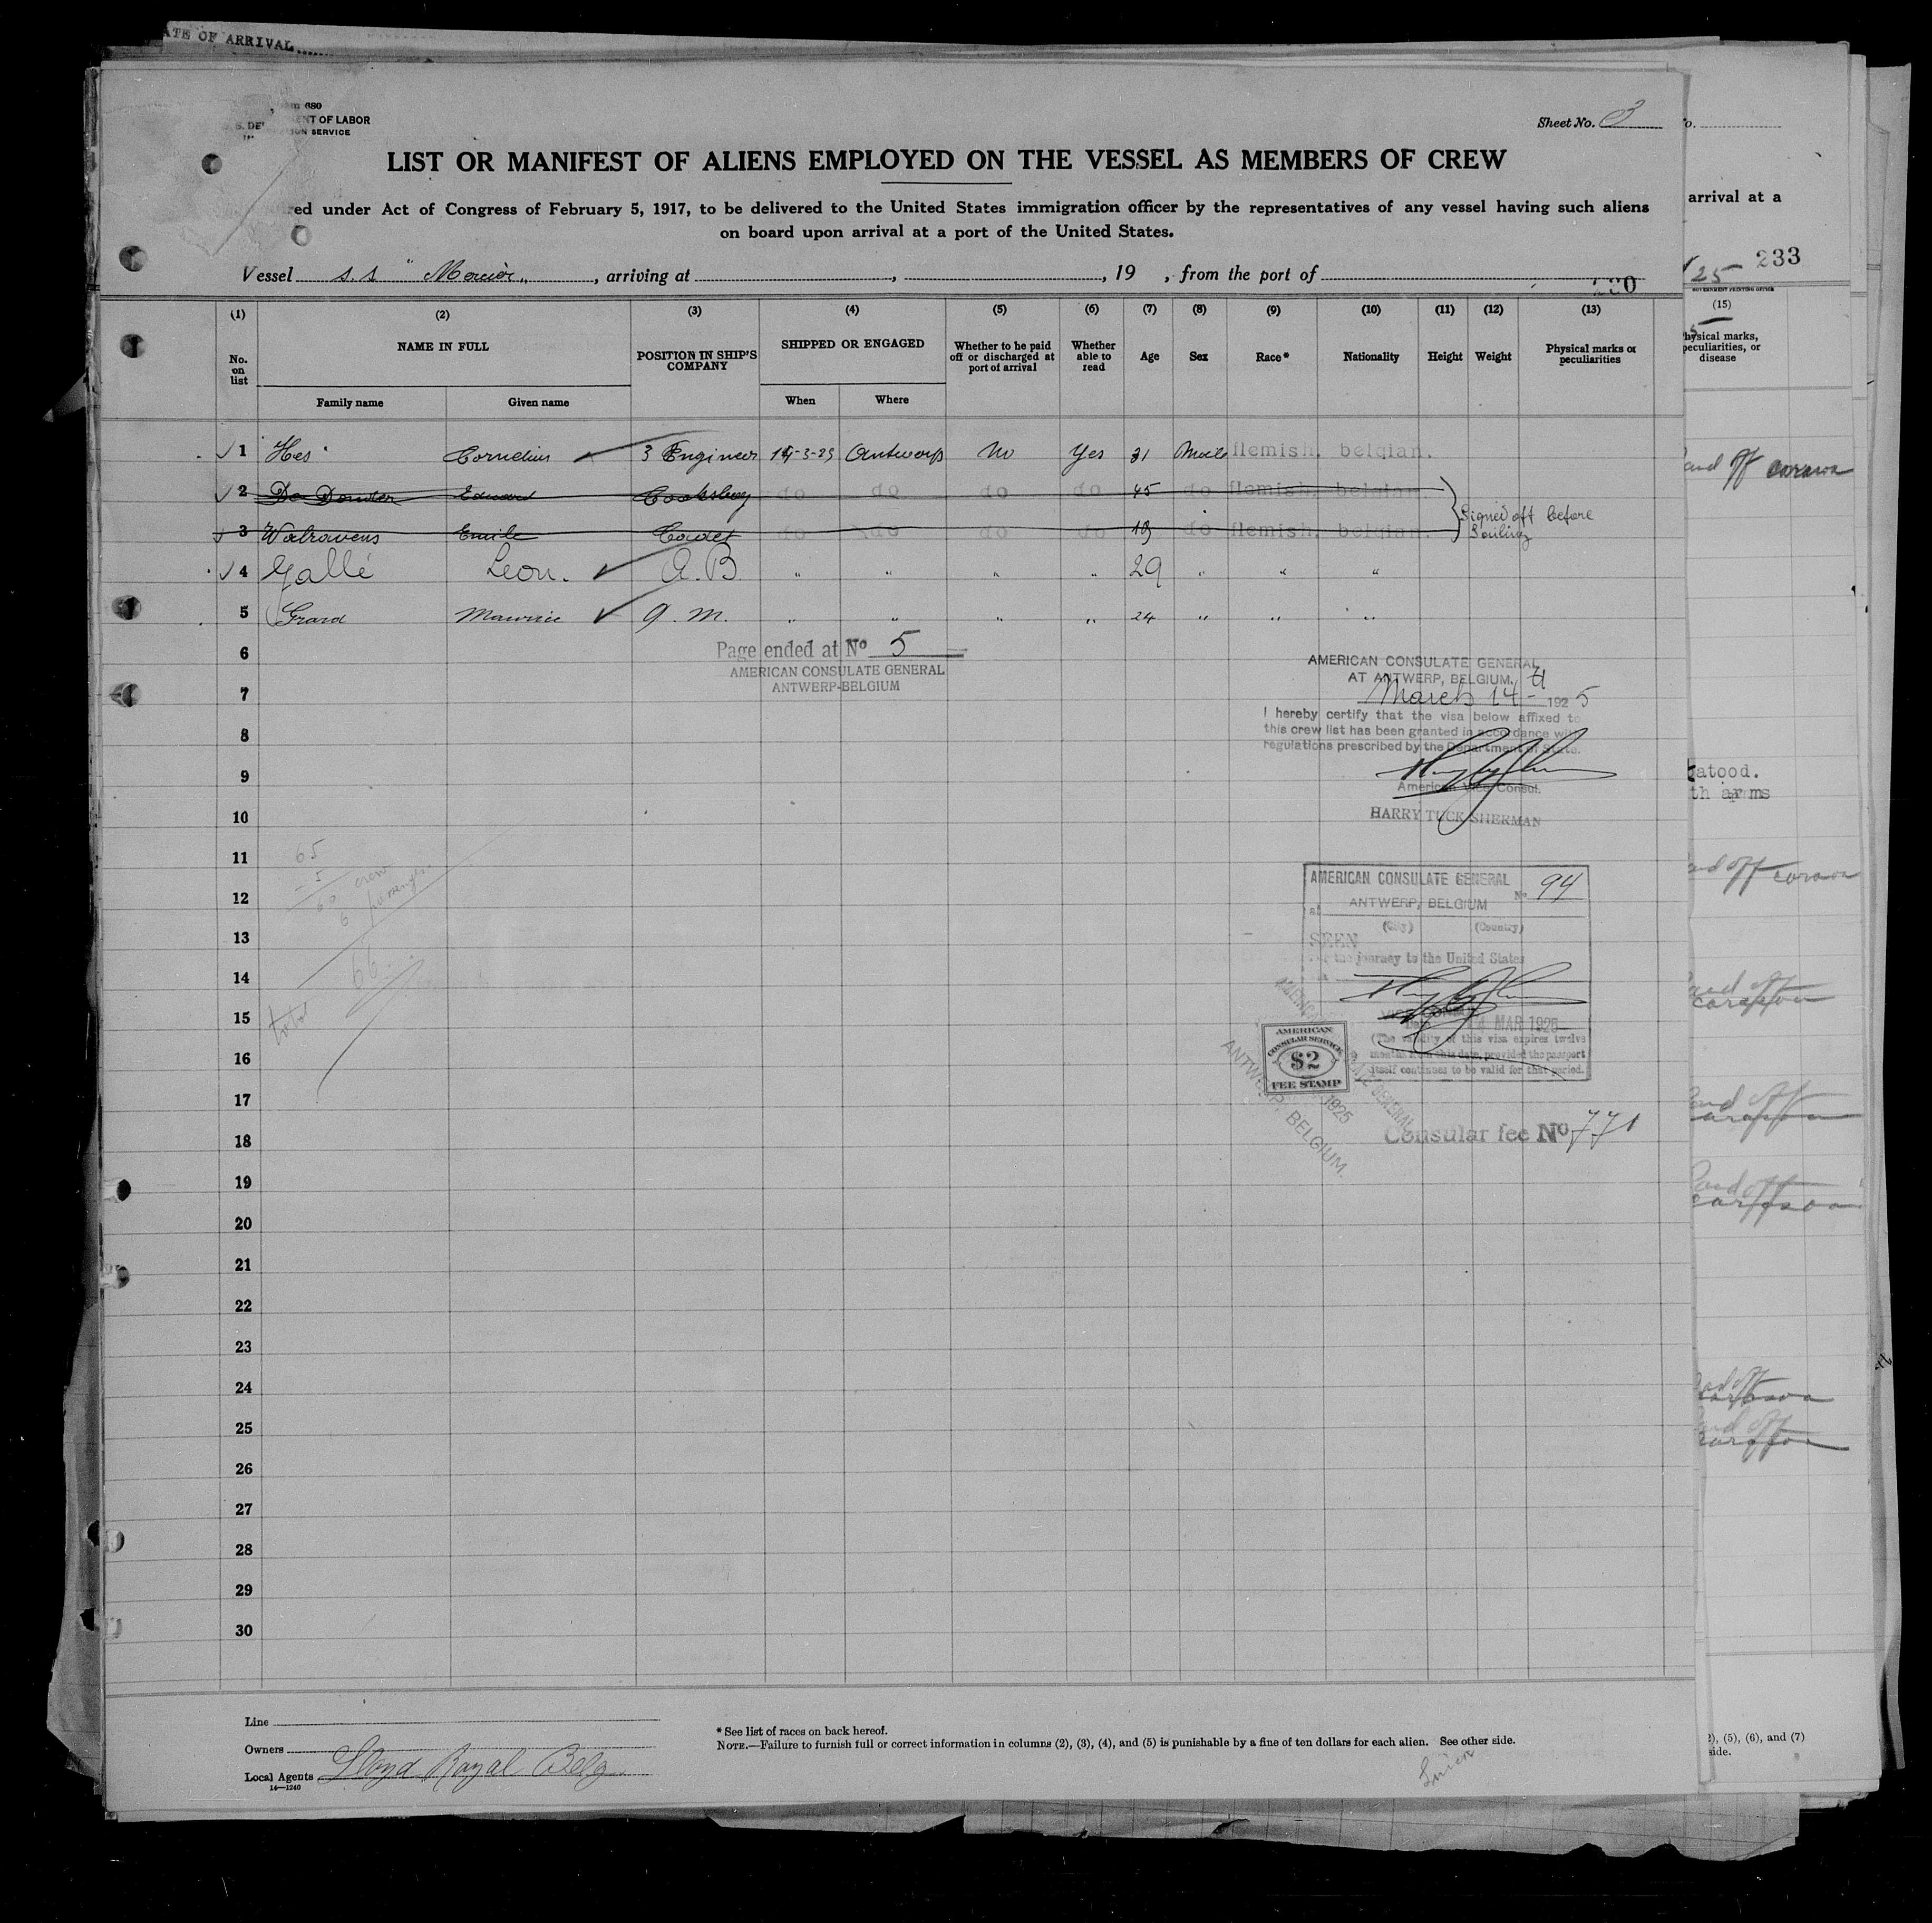 ATE OF ARRIVAL
680
ENT OF LABOR
SERVICE
Sheet No. 3
LIST OR MANIFEST OF ALIENS EMPLOYED ON THE VESSEL AS MEMBERS OF CREW
red under Act of Congress of February 5, 1917, to be delivered to the United States immigration officer by the representatives of any vessel having such aliens
on board upon arrival at a port of the United States.
arrival at a
Vessel s.s "Mercier", arriving at , , 19 , from the port of
25 233
(1) (2) (3) (4) (5) (6) (7) (8) (9) (10) (11) (12) (13) (15)
No. on list NAME IN FULL POSITION IN SHIP'S COMPANY SHIPPED OR ENGAGED Whether to be paid off or discharged at port of arrival Whether able to read Age Sex Race* Nationality Height Weight Physical marks or peculiarities
Physical marks, peculiarities, or disease
Family name Given name When Where
1 Hes Cornelius 3 Engineer 14-3-25 Antwerp No Yes 31 Male flemish. belgian.
2 De Donder Eduard Cooksboy do do do do 45 do flemish. belgian.
3 Walravens Emile Cadet do do do do 19 do flemish. belgian.
Signed off before
Sailing
4 Gallé Leon. A.B. " " " " 29 " " "
5 Grard Maurice q. m. " " " " 24 " " "
6
Page ended at No 5
AMERICAN CONSULATE GENERAL
ANTWERP-BELGIUM
AMERICAN CONSULATE GENERAL
AT ANTWERP, BELGIUM.
7
March 14 1925
I hereby certify that the visa below affixed to
this crew list has been granted in accordance with
regulations prescribed by the Department of State.
8
9
American Vice Consul.
HARRY TUCK SHERMAN
atood.
th arms
10
11
65
5
60 crew
6 passengers
66
total
12
13
14
15
16
17
18
AMERICAN CONSULATE GENERAL No 94
at ANTWERP, BELGIUM
(City) (Country)
SEEN
the journey to the United States
MAR 1925
(The validity of this visa expires twelve
months from this date, provided the passport
itself continues to be valid for that period.
AMERICAN
CONSULAR SERVICE
$2
FEE STAMP
1925
ANTWERP, BELGIUM.
Consular fee No 771
19
20
21
22
23
24
25
26
27
28
29
30
Line
Owners
Local Agents Lloyd Royal Belg
14—1240
* See list of races on back hereof.
NOTE.—Failure to furnish full or correct information in columns (2), (3), (4), and (5) is punishable by a fine of ten dollars for each alien. See other side.
(5), (6), and (7)
side.